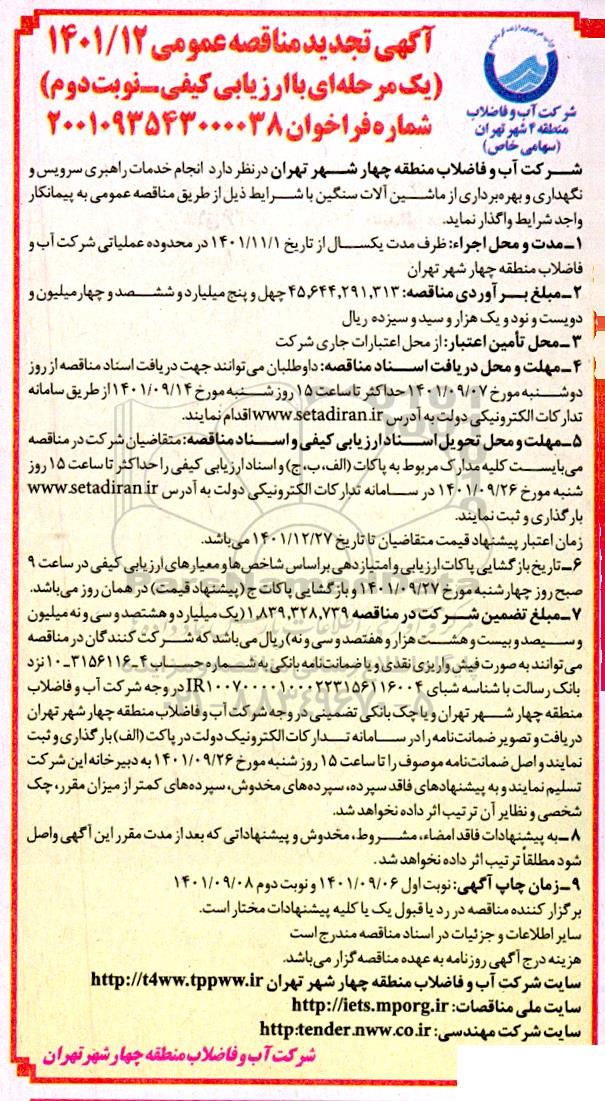 آگهی تجدید مناقصه عمومی ۱۴۰۱/۱۲
(یک مرحله‌ای با ارزیابی کیفی ـ نوبت دوم)
شماره فراخوان ۲۰۰۱۰۹۳۵۴۳۰۰۰۰۳۸
شرکت آب و فاضلاب
منطقه ۴ شهر تهران
(سهامی خاص)
شرکت آب و فاضلاب منطقه چهار شهر تهران در نظر دارد انجام خدمات راهبری سرویس و
نگهداری و بهره‌برداری از ماشین آلات سنگین با شرایط ذیل از طریق مناقصه عمومی به پیمانکار
واجد شرایط واگذار نماید.
۱ـ مدت و محل اجراء: ظرف مدت یکسال از تاریخ ۱۴۰۱/۱۱/۱ در محدوده عملیاتی شرکت آب و
فاضلاب منطقه چهار شهر تهران
۲ـ مبلغ برآوردی مناقصه: ۴۵,۶۴۴,۲۹۱,۳۱۳ چهل و پنج میلیارد و ششصد و چهار میلیون و
دویست و نود و یک هزار و سیصد و سیزده ریال
۳ـ محل تأمین اعتبار: از محل اعتبارات جاری شرکت
۴ـ مهلت و محل دریافت اسناد مناقصه: داوطلبان می‌توانند جهت دریافت اسناد مناقصه از روز
دوشنبه مورخ ۱۴۰۱/۰۹/۰۷ حداکثر تا ساعت ۱۵ روز شنبه مورخ ۱۴۰۱/۰۹/۱۴ از طریق سامانه
تدارکات الکترونیکی دولت به آدرس www.setadiran.ir اقدام نمایند.
۵ـ مهلت و محل تحویل اسناد ارزیابی کیفی و اسناد مناقصه: متقاضیان شرکت در مناقصه
می‌بایست کلیه مدارک مربوط به پاکات (الف، ب، ج) و اسناد ارزیابی کیفی را حداکثر تا ساعت ۱۵ روز
شنبه مورخ ۱۴۰۱/۰۹/۲۶ در سامانه تدارکات الکترونیکی دولت به آدرس www.setadiran.ir
بارگذاری و ثبت نمایند.
زمان اعتبار پیشنهاد قیمت متقاضیان تا تاریخ ۱۴۰۱/۱۲/۲۷ می‌باشد.
۶ـ تاریخ بازگشایی پاکات ارزیابی و امتیازدهی براساس شاخص‌ها و معیارهای ارزیابی کیفی در ساعت ۹
صبح روز چهارشنبه مورخ ۱۴۰۱/۰۹/۲۷ و بازگشایی پاکات ج (پیشنهاد قیمت) در همان روز می‌باشد.
۷ـ مبلغ تضمین شرکت در مناقصه ۱,۸۳۹,۳۲۸,۷۳۹ (یک میلیارد و هشتصد و سی و نه میلیون
و سیصد و بیست و هشت هزار و هفتصد و سی و نه) ریال می‌باشد که شرکت کنندگان در مناقصه
می‌توانند به صورت فیش واریزی نقدی و یا ضمانت‌نامه بانکی به شماره حساب ۴ـ۳۱۵۶۱۱۶ـ۱۰ نزد
بانک رسالت با شناسه شبای IR۱۰۰۷۰۰۰۰۱۰۰۰۲۲۳۱۵۶۱۱۶۰۰۴ در وجه شرکت آب و فاضلاب
منطقه چهار شهر تهران و یا چک بانکی تضمینی در وجه شرکت آب و فاضلاب منطقه چهار شهر تهران
دریافت و تصویر ضمانت‌نامه را در سامانه تدارکات الکترونیک دولت در پاکت (الف) بارگذاری و ثبت
نمایند و اصل ضمانت‌نامه موصوف را تا ساعت ۱۵ روز شنبه مورخ ۱۴۰۱/۰۹/۲۶ به دبیرخانه این شرکت
تسلیم نمایند و به پیشنهادهای فاقد سپرده، سپرده‌های مخدوش، سپرده‌های کمتر از میزان مقرر، چک
شخصی و نظایر آن ترتیب اثر داده نخواهد شد.
۸ـ به پیشنهادات فاقد امضاء، مشروط، مخدوش و پیشنهاداتی که بعد از مدت مقرر این آگهی واصل
شود مطلقاً ترتیب اثر داده نخواهد شد.
۹ـ زمان چاپ آگهی: نوبت اول ۱۴۰۱/۰۹/۰۶ و نوبت دوم ۱۴۰۱/۰۹/۰۸
برگزار کننده مناقصه در رد یا قبول یک یا کلیه پیشنهادات مختار است.
سایر اطلاعات و جزئیات در اسناد مناقصه مندرج است
هزینه درج آگهی روزنامه به عهده مناقصه گزار می‌باشد.
سایت شرکت آب و فاضلاب منطقه چهار شهر تهران http://t4ww.tppww.ir
سایت ملی مناقصات: http://iets.mporg.ir
سایت شرکت مهندسی: http:tender.nww.co.ir
شرکت آب و فاضلاب منطقه چهار شهر تهران